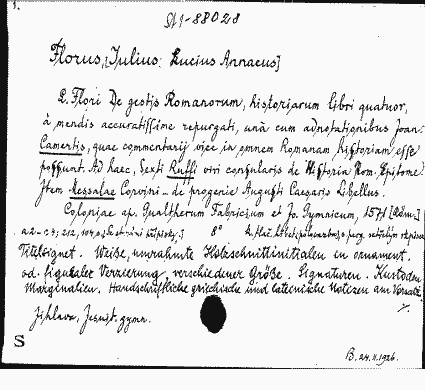 1.
SA1-88028
Florus, [Julius: Lucius Annaeus]
L. Flori De gestis Romanorum, historiarum libri quatuor,
à mendis accuratissime repurgati, unà cum adnotationibus Joan.
Camertis, quae commentarij vice in omnem Romanam Historiam esse
possunt. Ad haec, Sexti Ruffi viri consularis de Historia Rom. Epitome.
Item Messalae Corvini de progenie Augusti Caesaris Libellus.
Coloniae ap. Gualtherum Fabricium et Jo. Gymnicum, 1571
8°
Titelsignet. Weiße, umrahmte Holzschnittinitialen in ornament.
od. figuraler Verzierung, verschiedener Größe. Signaturen. Kustoden.
Marginalien. Handschriftliche griechische und lateinische Notizen am Vorsatz.
Jihlava, Jesuit. gymn.
S
B. 24.II.1926.